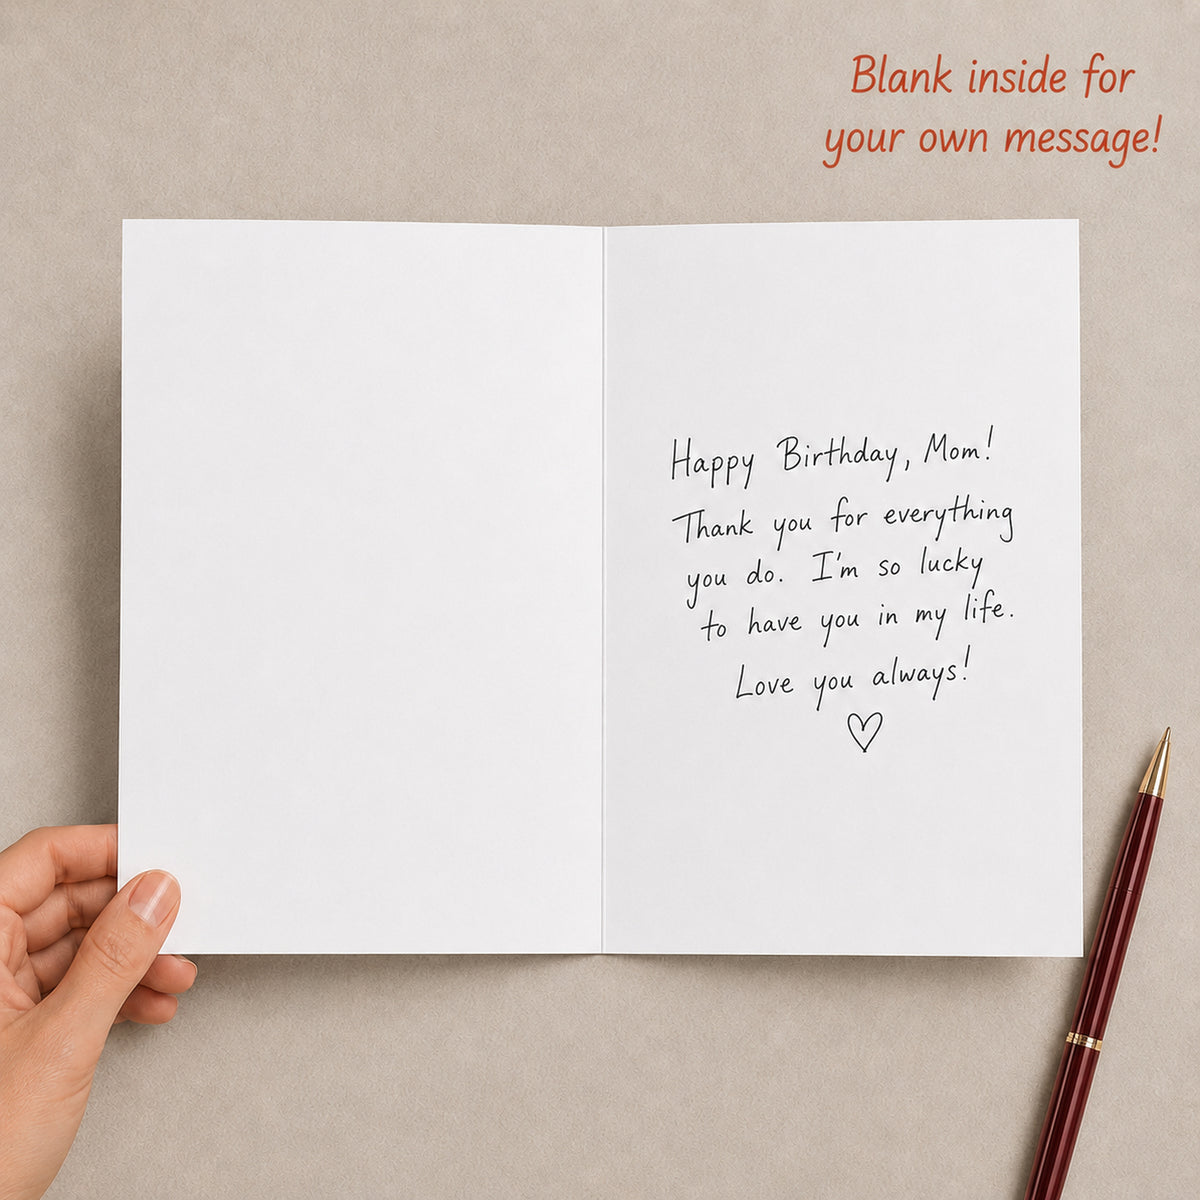 Blank inside for
your own message!
Happy Birthday, Mom!
Thank you for everything
you do. I'm so lucky
to have you in my life.
Love you always!